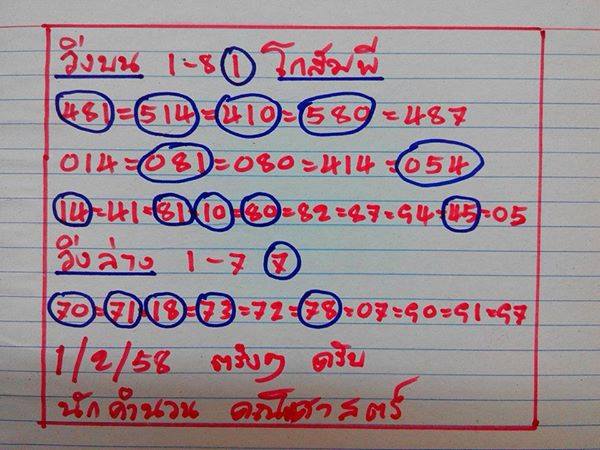 วิ่งบน 1-8 1 โกสัมพี
481=514=410=580=487
014=081=080=414=054
14=41=81=10=80=82=87=94=45=05
วิ่งล่าง 1-7 7
70=71=18=73=72=78=07=90=91=97
1/2/58 ตรงๆ ครับ
นักคำนวน คณิตศาสตร์